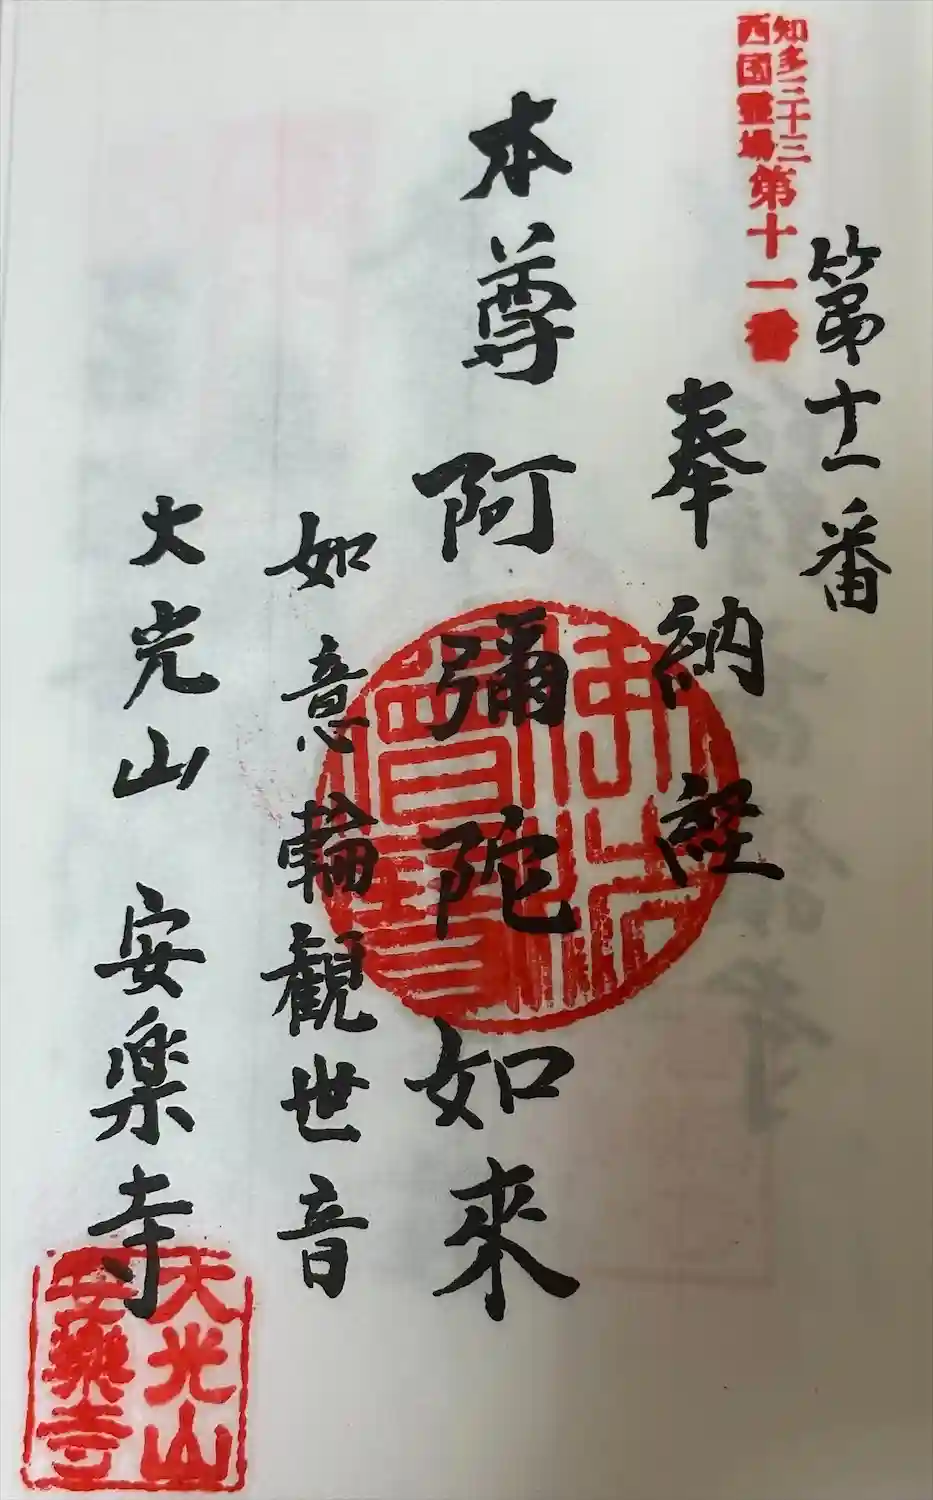 第十一番
知多三十三
西国霊場
第十一番
奉納経
本尊 阿彌陀如来
如意輪観世音
大光山 安楽寺
佛法僧寶
大光山
安樂寺